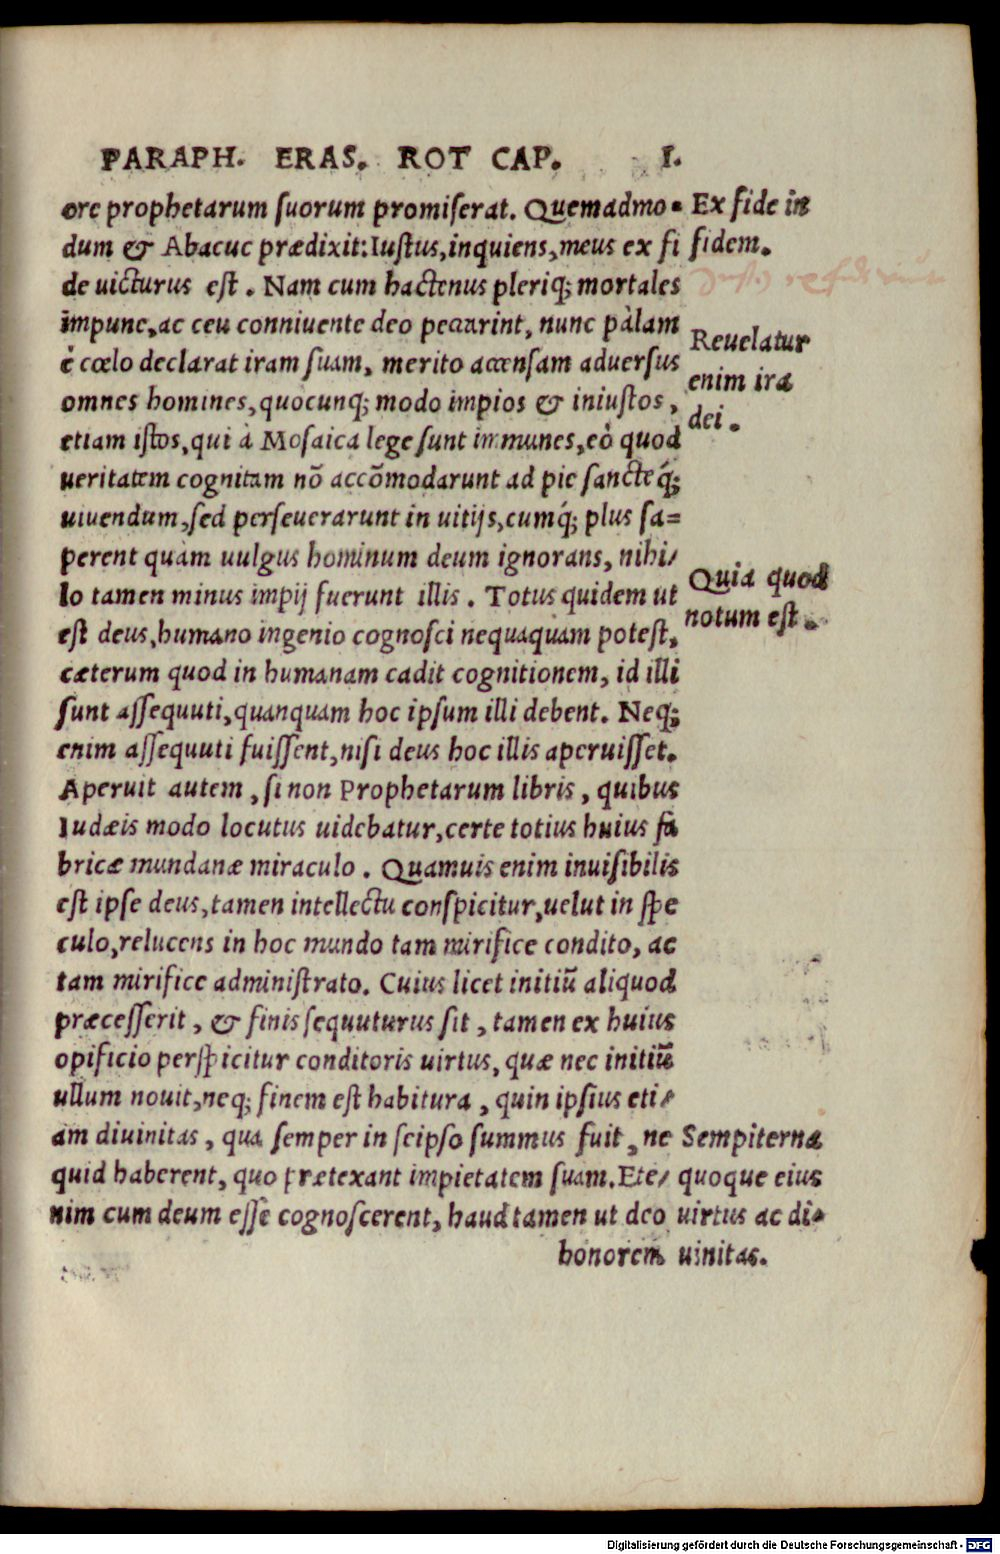 PARAPH. ERAS. ROT CAP. I.
ore prophetarum suorum promiserat. Quemadmo-
dum & Abacuc prædixit: Iustus, inquiens, meus ex fi
de uicturus est. Nam cum hactenus pleriq; mortales
impune, ac ceu conniuente deo peccarint, nunc pàlam
è cœlo declarat iram suam, merito accensam aduersus
omnes homines, quocunq; modo impios & iniustos,
etiam istos, qui à Mosaica lege sunt immunes, eò quod
ueritatem cognitam nõ accõmodarunt ad pie sancteq́;
uiuendum, sed perseuerarunt in uitijs, cumq́; plus sa=
perent quàm uulgus hominum deum ignorans, nihi/
lo tamen minus impij fuerunt illis. Totus quidem ut
est deus, humano ingenio cognosci nequaquam potest,
cæterum quod in humanam cadit cognitionem, id illi
sunt assequuti, quanquam hoc ipsum illi debent. Neq;
enim assequuti fuissent, nisi deus hoc illis aperuisset.
Aperuit autem, si non Prophetarum libris, quibus
Iudæis modo locutus uidebatur, certe totius huius fa
bricæ mundanæ miraculo. Quamuis enim inuisibilis
est ipse deus, tamen intellectu conspicitur, uelut in spe
culo, relucens in hoc mundo tam mirifice condito, ac
tam mirifice administrato. Cuius licet initiũ aliquod
præcesserit, & finis sequuturus sit, tamen ex huius
opificio perspicitur conditoris uirtus, quæ nec initiũ
ullum nouit, neq; finem est habitura, quin ipsius eti/
am diuinitas, qua semper in seipso summus fuit, ne
quid haberent, quo prætexant impietatem suam. Ete/
nim cum deum esse cognoscerent, haud tamen ut deo
honorem
Ex fide in
fidem.
Reuelatur
enim ira
dei.
Quia quod
notum est.
Sempiterna
quoque eius
uirtus ac di-
uinitas.
Digitalisierung gefördert durch die Deutsche Forschungsgemeinschaft - DFG